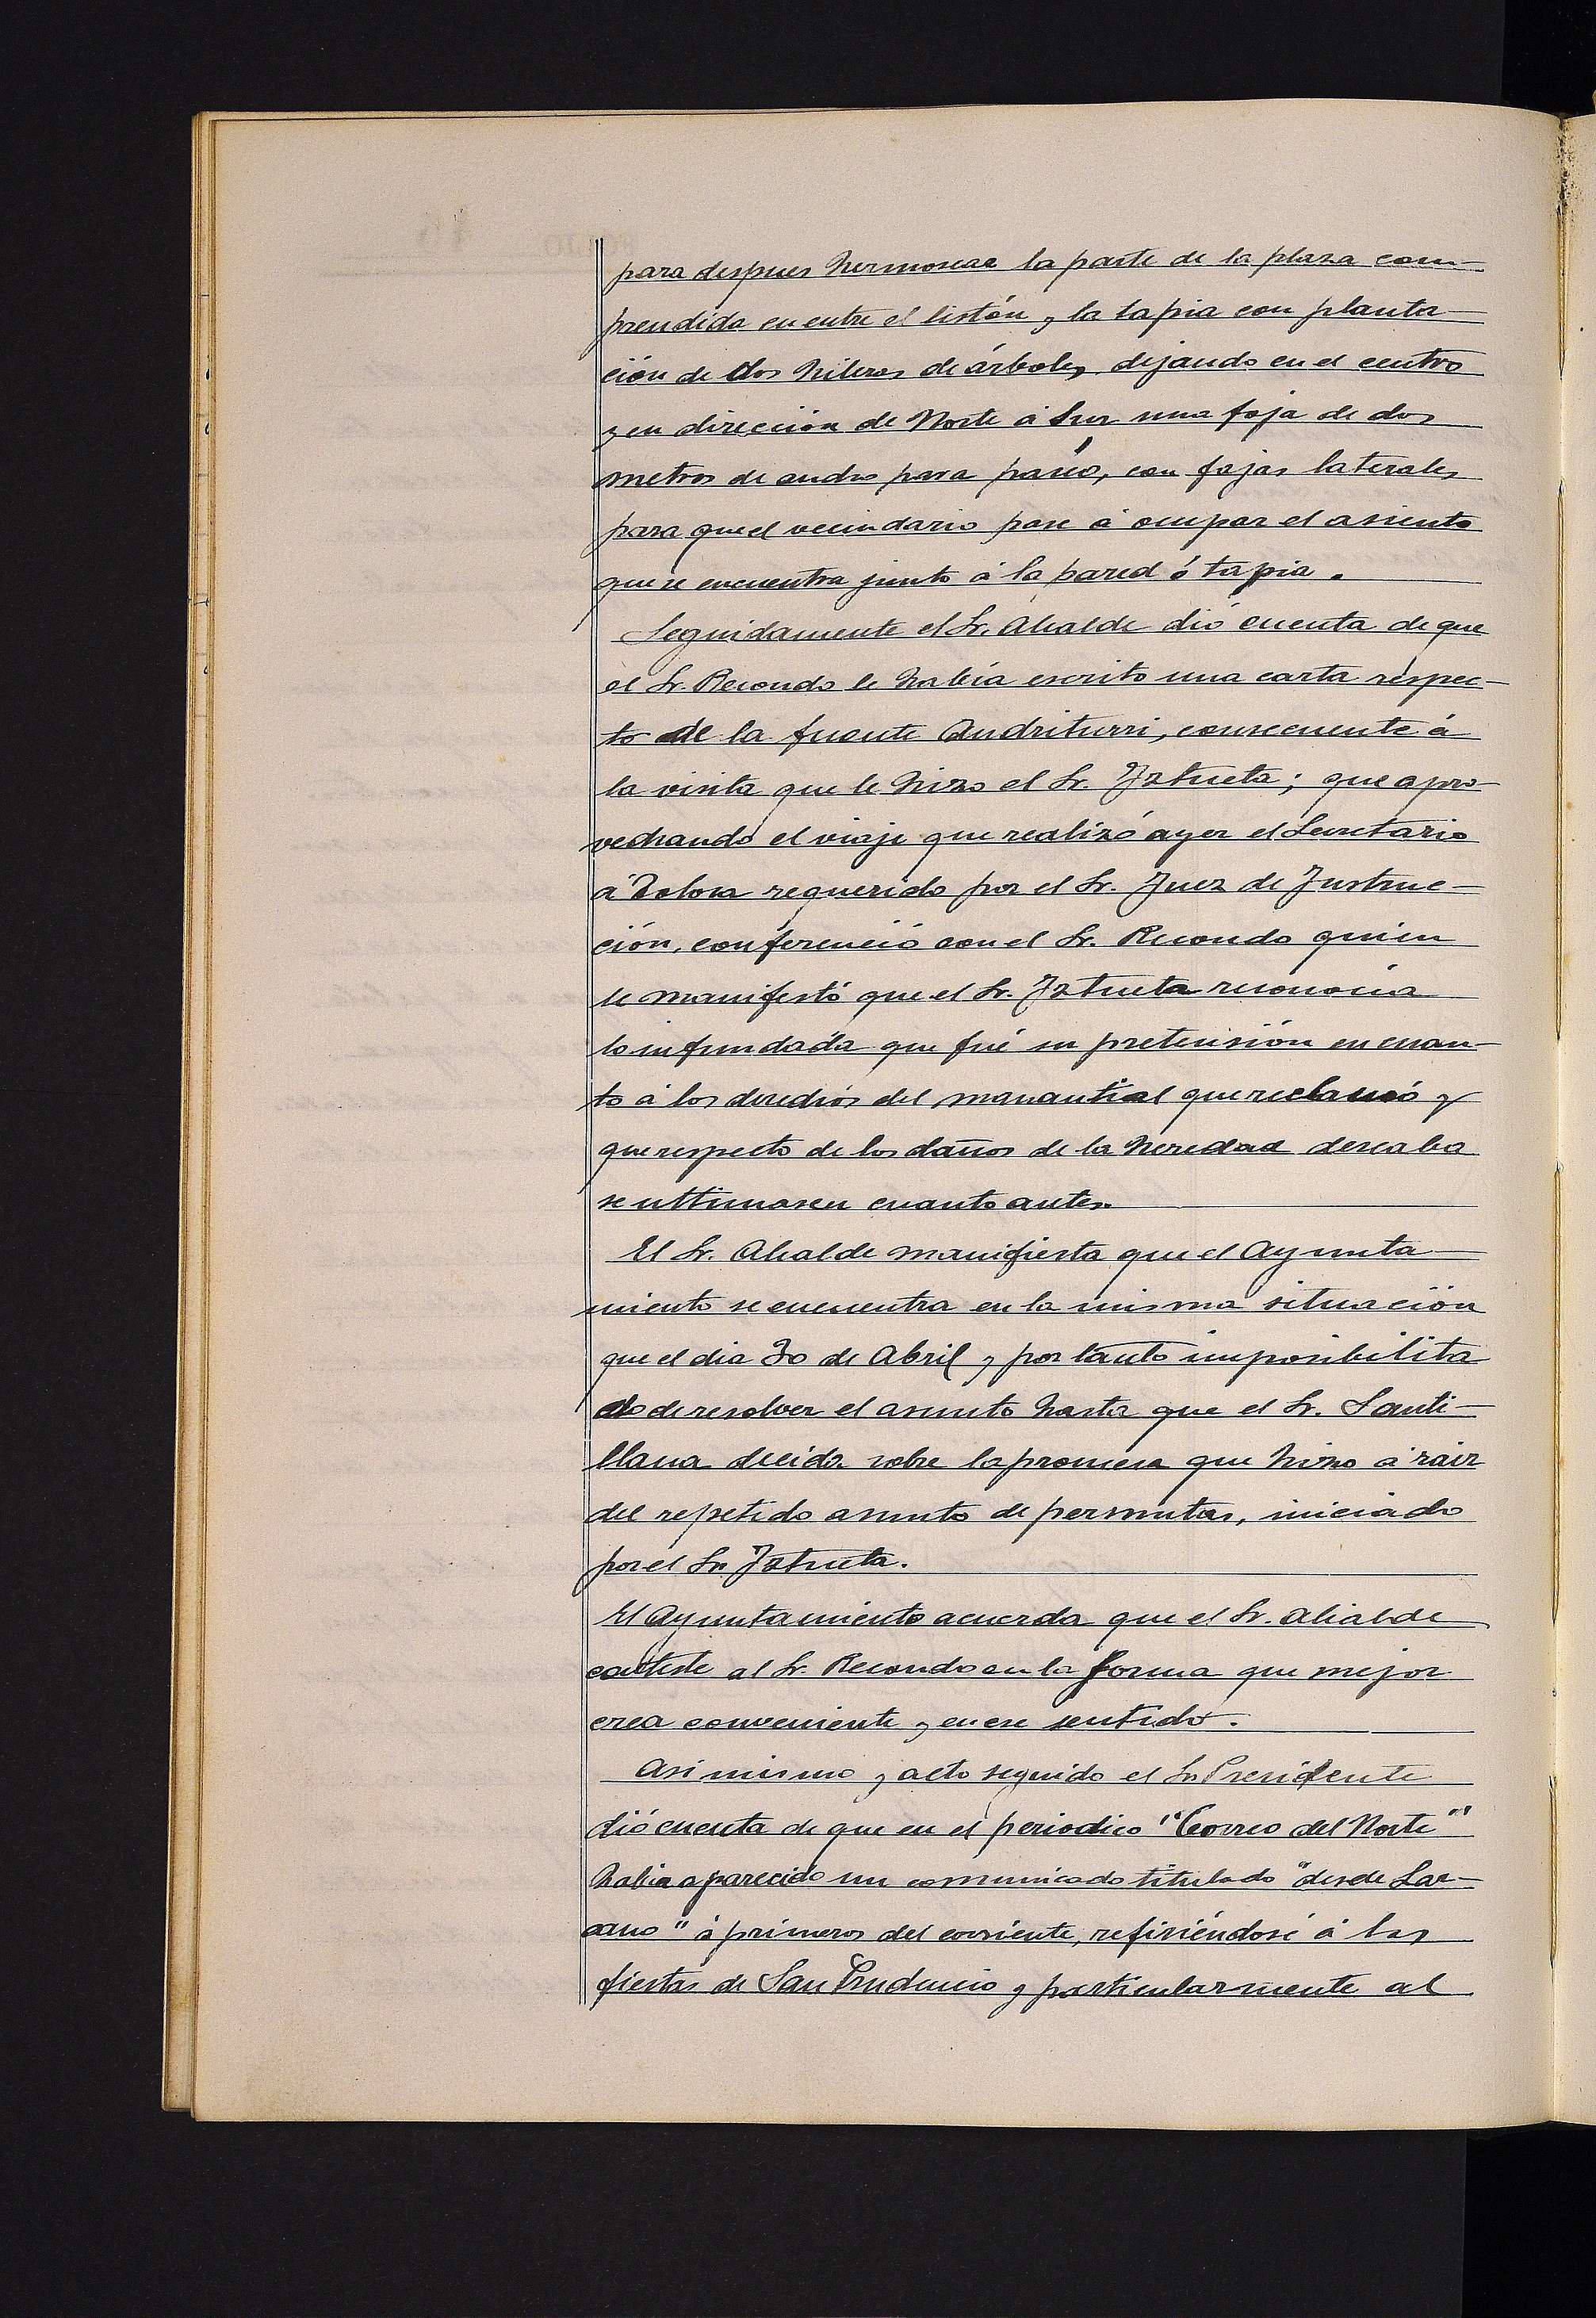 para despues hermosear la parte de la plaza com-
prendida en entre el listón y la tapia con planta-
ción de dos hileras de árboles, dejando en el centro
y en dirección de Norte á Sur una faja de dos
metros de ancho para paseo, con fajas laterales
para que el vecindario pase á ocupar el asiento
que se encuentra junto á la pared ó tapia.
Seguidamente el Sr. Alcalde dió cuenta de que
el Sr. Recondo le había escrito una carta respec-
to de la fuente Andriturri, consecuente á
la visita que le hizo el Sr. Iztueta; que apro-
vechando el viaje que realizó ayer el Secretario
á Tolosa requerido por el Sr. Juez de Instruc-
ción, conferenció con el Sr. Recondo quien
le manifestó que el Sr. Iztueta reconocía
lo infundada que fué su pretensión en cuan-
to á los derechos del manantial que reclamó y
que respecto de los daños de la heredad deseaba
se ultimasen cuanto antes.
El Sr. Alcalde manifiesta que el Ayunta-
miento se encuentra en la misma situación
que el dia 30 de Abril y por tanto imposibilita
do de resolver el asunto hasta que el Sr. Santi-
llana decida sobre la promesa que hizo á raiz
del repetido asunto de permutas, iniciado
por el Sr. Iztueta.
El Ayuntamiento acuerda que el Sr. Alcalde
conteste al Sr. Recondo en la forma que mejor
crea conveniente y en ese sentido.
Asi mismo y acto seguido el Sr. Presidente
dió cuenta de que en el periodico "Correo del Norte"
habia aparecido un comunicado titulado "desde Laz-
cano" á primeros del corriente, refiriéndose á las
fiestas de San Prudencio y particularmente al